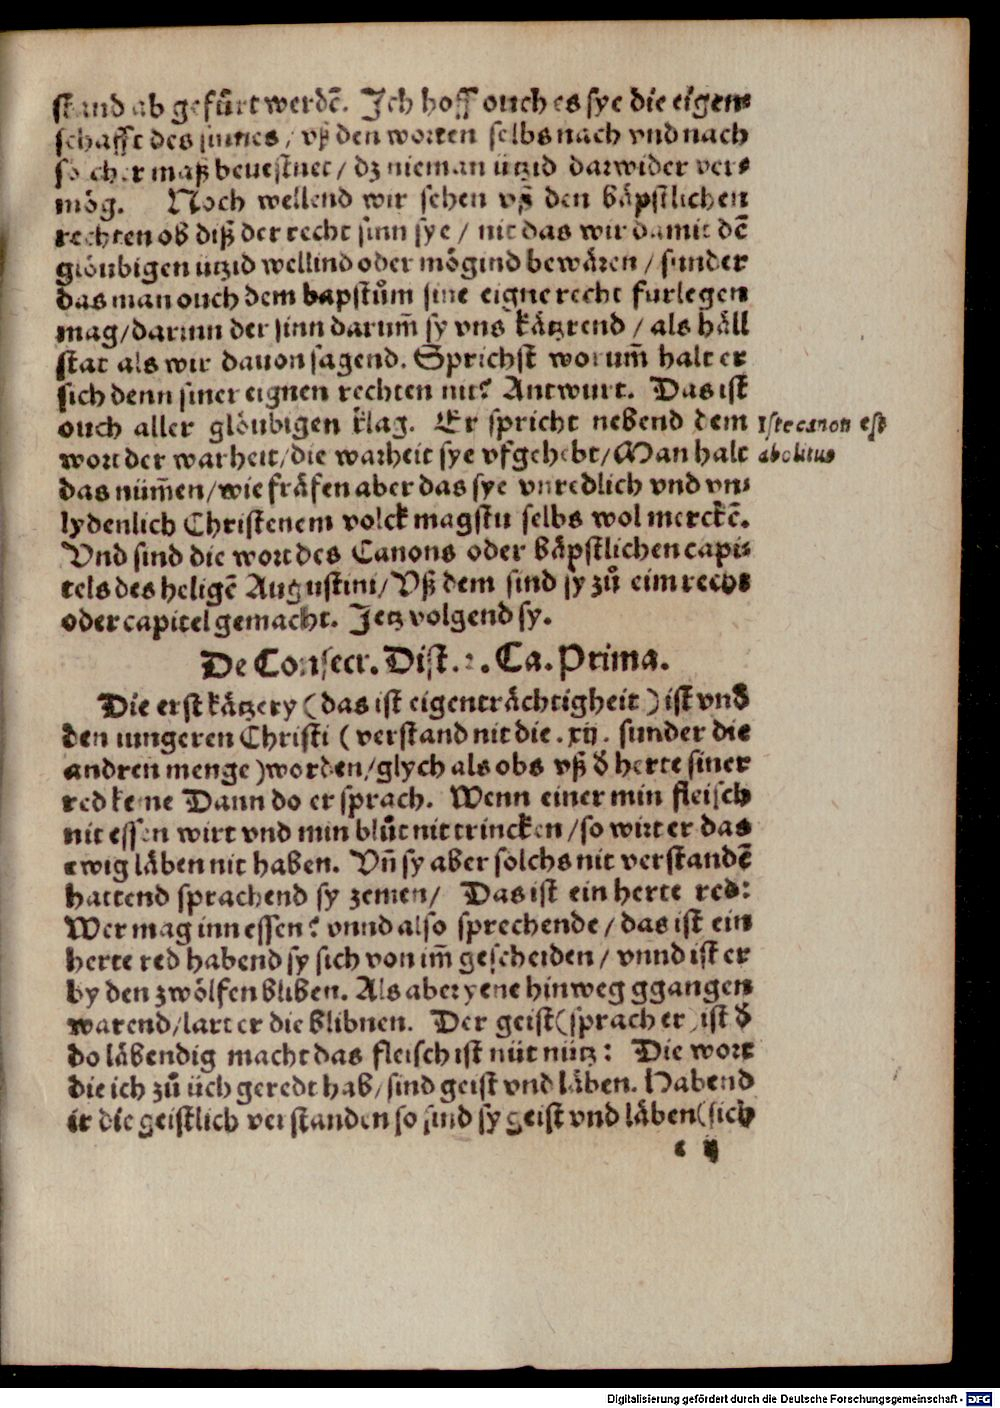 stand ab gefůrt werdẽ. Ich hoff ouch es sye die eigen⸗
schafft des sinnes / vß den worten selbs nach vnd nach
solcher maß bevestnet / dz nieman ützid darwider ver⸗
mög. Noch wellend wir sehen vß den bäpstlichen
rechten ob diß der recht sinn sye / nit das wir damit dẽ
glöubigen ützid wellind oder mögind bewären / sunder
das man ouch dem bapstům sine eigne recht furlegen
mag / darinn der sinn darum̃ sy vns kätzrend / als häll
stat als wir dauon sagend. Sprichst worum̃ halt er
sich denn siner eignen rechten nit? Antwurt. Das ist
ouch aller glöubigen klag. Er spricht nebend dem
wort der warheit / die warheit sye vfgehebt / Man halt
das nüm̃en / wie fräfen aber das sye vnredlich vnd vn⸗
lydenlich Christenem volck magstu selbs wol merckẽ.
Vnd sind die wort des Canons oder bäpstlichen capi⸗
tels des heligẽ Augustini / Vß dem sind sy zů eim rechs
oder capitel gemacht. Jetz volgend sy.
Iste canon est
abolitus
De Consecr. Dist. 2. Ca. Prima.
Die erst kätzery (das ist eigenträchtigheit) ist vnd̕
den iungeren Christi (verstand nit die .xij. sunder die
andren menge) worden / glych als obs vß d̕ herte siner
red keme Dann do er sprach. Wenn einer min fleisch
nit essen wirt vnd min blůt nit trincken / so wirt er das
ewig läben nit haben. Vñ sy aber solchs nit verstandẽ
hattend sprachend sy zemen / Das ist ein herte red:
Wer mag inn essen? vnnd also sprechende / das ist ein
herte red habend sy sich von im̃ gescheiden / vnnd ist er
by den zwölfen bliben. Als aber yene hinweg ggangen
warend / lart er die blibnen. Der geist (sprach er) ist d̕
do läbendig macht das fleisch ist nüt nütz: Die wort
die ich zů üch geredt hab / sind geist vnd läben. Habend
ir die geistlich verstanden so sind sy geist vnd läben (sich
c ij
Digitalisierung gefördert durch die Deutsche Forschungsgemeinschaft - DFG